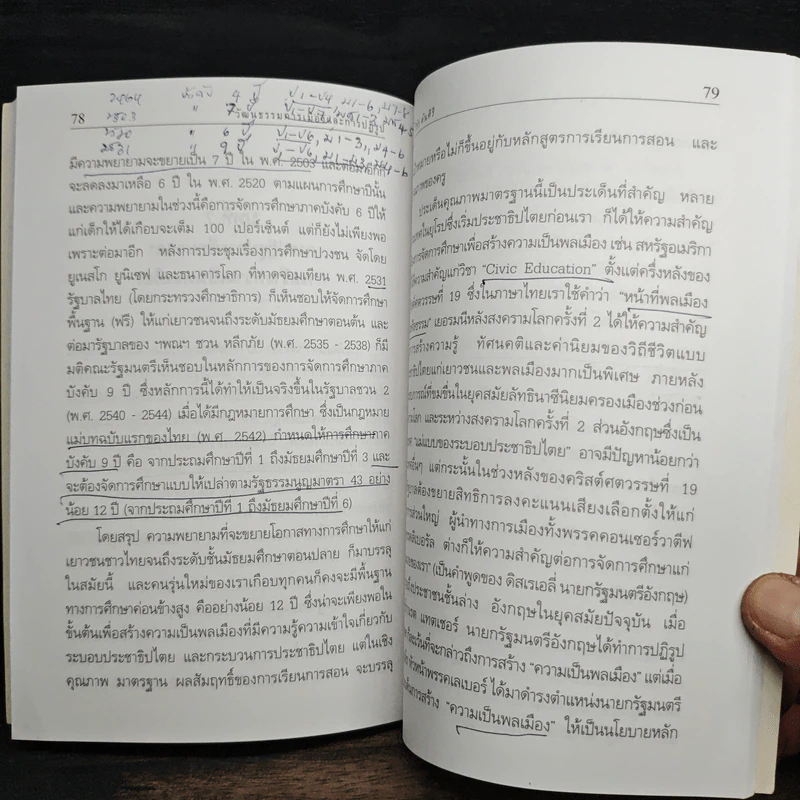 78
มีความพยายามจะขยายเป็น 7 ปี ใน พ.ศ. 2503 และต่อมาก็
จะลดลงมาเหลือ 6 ปี ใน พ.ศ. 2520 ตามแผนการศึกษาปีนั้น
และความพยายามในช่วงนี้คือการจัดการศึกษาภาคบังคับ 6 ปีให้
แก่เด็กให้ได้เกือบจะเต็ม 100 เปอร์เซ็นต์ แต่ก็ยังไม่เพียงพอ
เพราะต่อมาอีก หลังการประชุมเรื่องการศึกษาปวงชน จัดโดย
ยูเนสโก ยูนิเซฟ และธนาคารโลก ที่หาดจอมเทียน พ.ศ. 2531
รัฐบาลไทย (โดยกระทรวงศึกษาธิการ) ก็เห็นชอบให้จัดการศึกษา
พื้นฐาน (ฟรี) ให้แก่เยาวชนจนถึงระดับมัธยมศึกษาตอนต้น และ
ต่อมารัฐบาลของ ฯพณฯ ชวน หลีกภัย (พ.ศ. 2535 - 2538) ก็มี
มติคณะรัฐมนตรีเห็นชอบในหลักการของการจัดการศึกษาภาค
บังคับ 9 ปี ซึ่งหลักการนี้ได้ทำให้เป็นจริงขึ้นในรัฐบาลชวน 2
(พ.ศ. 2540 - 2544) เมื่อได้มีกฎหมายการศึกษา ซึ่งเป็นกฎหมาย
แม่บทฉบับแรกของไทย (พ.ศ. 2542) กำหนดให้การศึกษาภาค
บังคับ 9 ปี คือ จากประถมศึกษาปีที่ 1 ถึงมัธยมศึกษาปีที่ 3 และ
จะต้องจัดการศึกษาแบบให้เปล่าตามรัฐธรรมนูญมาตรา 43 อย่าง
น้อย 12 ปี (จากประถมศึกษาปีที่ 1 ถึงมัธยมศึกษาปีที่ 6)
โดยสรุป ความพยายามที่จะขยายโอกาสทางการศึกษาให้แก่
เยาวชนชาวไทยจนถึงระดับชั้นมัธยมศึกษาตอนปลาย ก็มาบรรลุ
ในสมัยนี้ และคนรุ่นใหม่ของเราเกือบทุกคนก็คงจะมีพื้นฐาน
ทางการศึกษาค่อนข้างสูง คืออย่างน้อย 12 ปี ซึ่งน่าจะเพียงพอใน
ขั้นต้นเพื่อสร้างความเป็นพลเมืองที่มีความรู้ความเข้าใจเกี่ยวกับ
ระบอบประชาธิปไตย และกระบวนการประชาธิปไตย แต่ในเชิง
คุณภาพ มาตรฐาน ผลสัมฤทธิ์ของการเรียนการสอน จะบรรลุ
79
หมายหรือไม่ก็ขึ้นอยู่กับหลักสูตรการเรียนการสอน และ
ภาพของครู
ประเด็นคุณภาพมาตรฐานนี้เป็นประเด็นที่สำคัญ หลาย
ประเทศในยุโรปซึ่งเริ่มประชาธิปไตยก่อนเรา ก็ได้ให้ความสำคัญ
การจัดการศึกษาเพื่อสร้างความเป็นพลเมือง เช่น สหรัฐอเมริกา
ความสำคัญแก่วิชา “Civic Education” ตั้งแต่ครึ่งหลังของ
ศตวรรษที่ 19 ซึ่งในภาษาไทยเราใช้คำว่า “หน้าที่พลเมือง
ธรรม” เยอรมนีหลังสงครามโลกครั้งที่ 2 ได้ให้ความสำคัญ
สร้างความรู้ ทัศนคติและค่านิยมของวิถีชีวิตแบบ
ธิปไตยแก่เยาวชนและพลเมืองมากเป็นพิเศษ ภายหลัง
การณ์ที่ขมขื่นในยุคสมัยลัทธินาซีนิยมครองเมืองช่วงก่อน
โลก และระหว่างสงครามโลกครั้งที่ 2 ส่วนอังกฤษซึ่งเป็น
แม่แบบของระบอบประชาธิปไตย” อาจมีปัญหาน้อยกว่า
อื่นๆ แต่กระนั้นในช่วงหลังของคริสต์ศตวรรษที่ 19
ต้องขยายสิทธิการลงคะแนนเสียงเลือกตั้งให้แก่
ส่วนใหญ่ ผู้นำทางการเมืองทั้งพรรคคอนเซอร์วาตีฟ
ต่างก็ให้ความสำคัญต่อการจัดการศึกษาแก่
ของเรา” (เป็นคำพูดของ ดิสเรเอลี่ นายกรัฐมนตรีอังกฤษ)
ประชาชนชั้นล่าง อังกฤษในยุคสมัยปัจจุบัน เมื่อ
แทตเชอร์ นายกรัฐมนตรีอังกฤษได้ทำการปฏิรูป
ที่จะกล่าวถึงการสร้าง “ความเป็นพลเมือง” แต่เมื่อ
หัวหน้าพรรคเลเบอร์ ได้มาดำรงตำแหน่งนายกรัฐมนตรี
การสร้าง “ความเป็นพลเมือง” ให้เป็นนโยบายหลัก